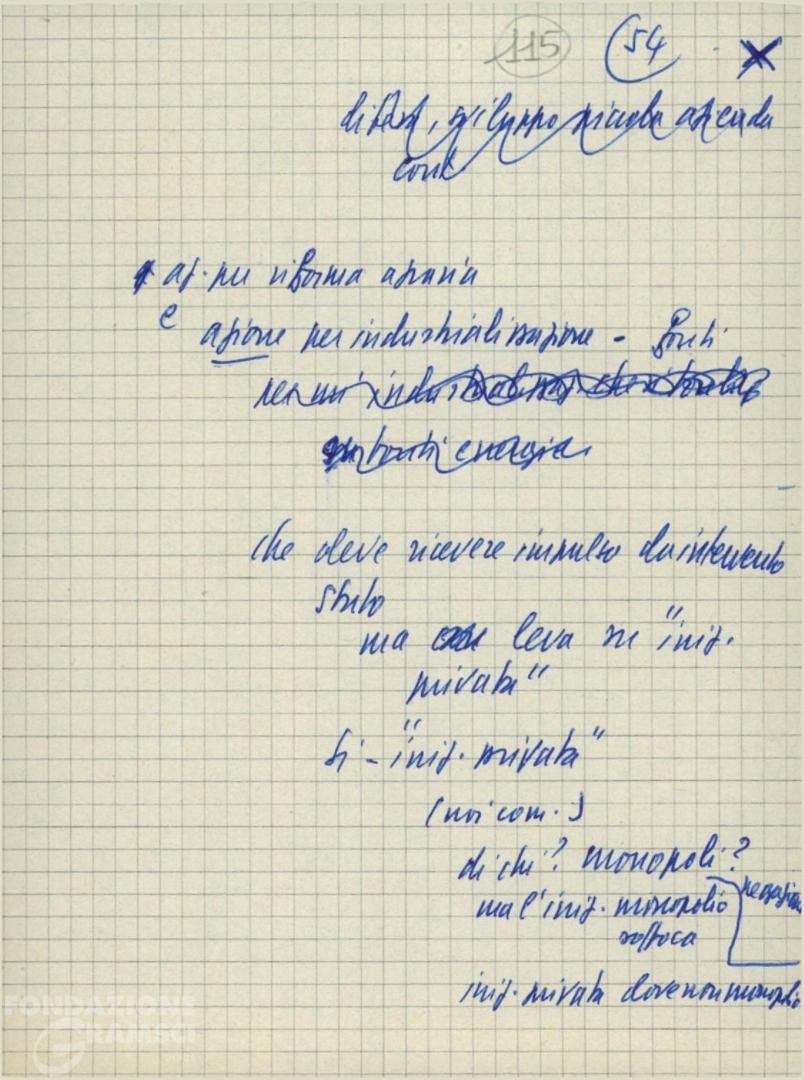 115 54
difesa, sviluppo piccola azienda
cont.
az. per riforma agraria
e
azione per industrializzazione - fonti
per un'industrializ. che
fonti energia
che deve ricevere impulso da intervento
Stato
ma leva su "iniz.
privata"
Si - "iniz. privata"
(noi com.)
di chi? monopoli?
negazione
ma l'iniz. monopolio
soffoca
iniz. privata dove non monopolio
FONDAZIONE
GRAMSCI